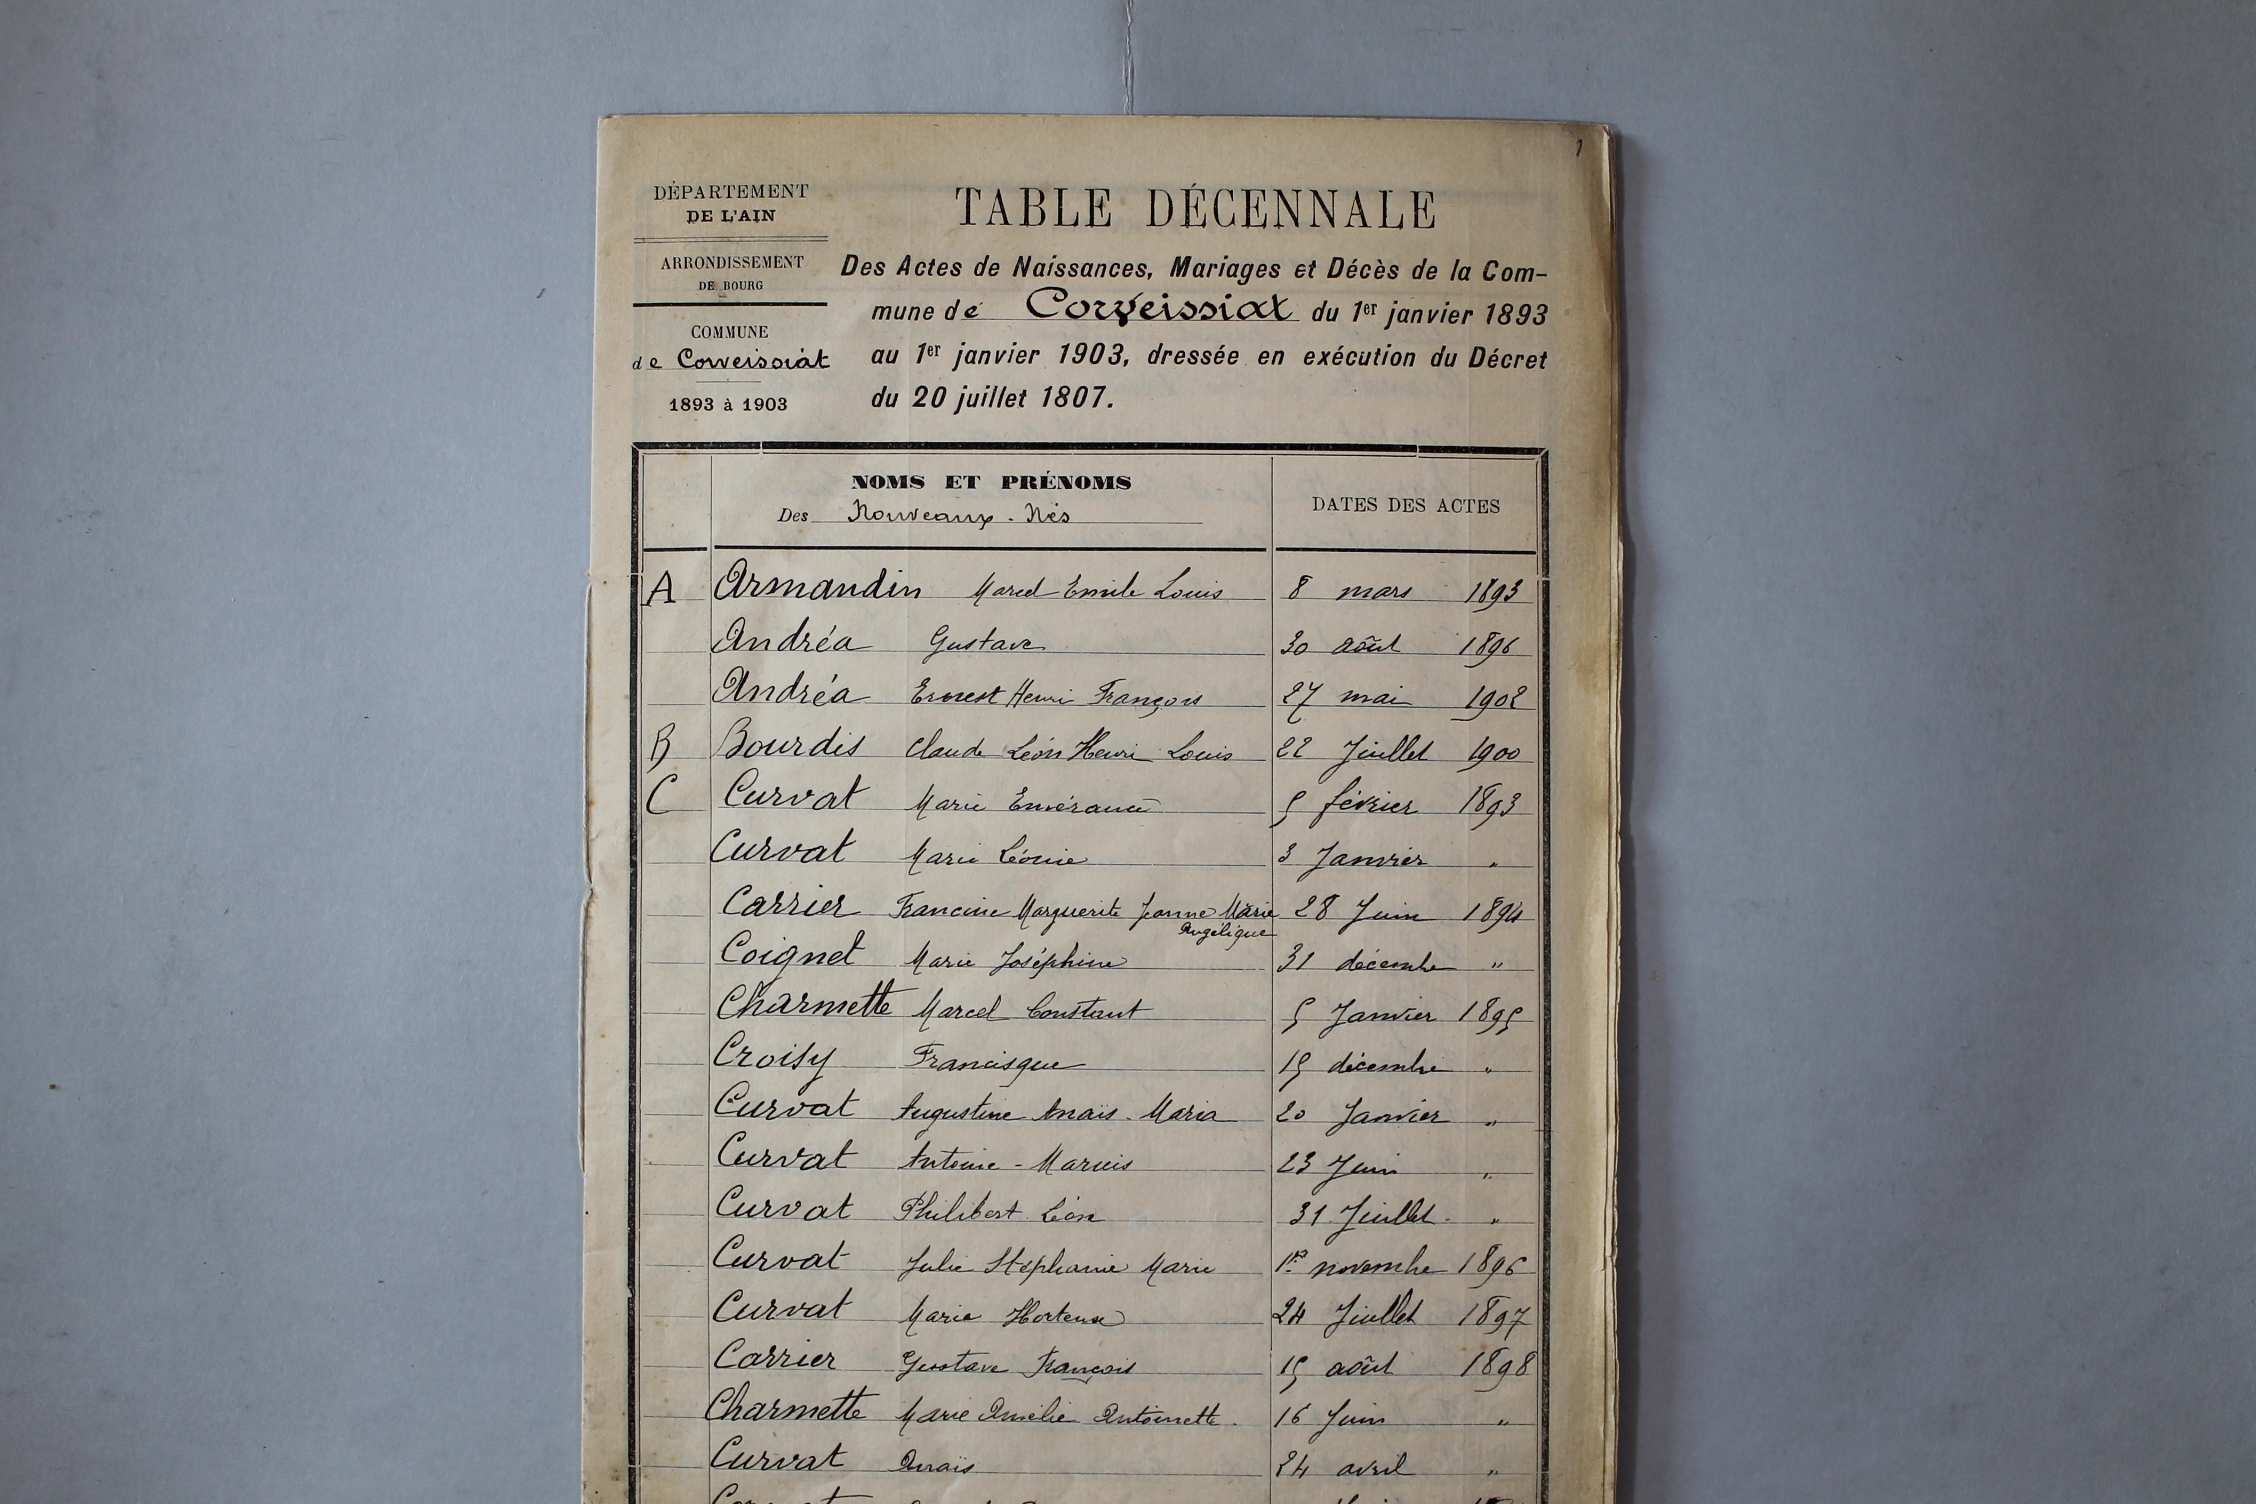 1
DÉPARTEMENT
DE L'AIN
ARRONDISSEMENT
DE BOURG
COMMUNE
de Corveissiat
1893 à 1903
TABLE DÉCENNALE
Des Actes de Naissances, Mariages et Décès de la Com-
mune de Corveissiat du 1er janvier 1893
au 1er janvier 1903, dressée en exécution du Décret
du 20 juillet 1807.
NOMS ET PRÉNOMS
Des Nouveaux-Nés
DATES DES ACTES
A Armandin Marcel Emile Louis 8 mars 1893
Andréa Gustave 30 août 1896
Andréa Ernest Henri François 27 mai 1902
B Bourdis Claude Léon Henri Louis 22 Juillet 1900
C Curvat Marie 5 février 1893
Curvat Marie Léonie 3 Janvier "
Carrier Francine Marguerite Jeanne Marie 28 Juin 1894
Angélique
Coignet Marie Joséphine 31 décembre "
Charmette Marcel Constant 5 Janvier 1895
Croisy Francisque 15 décembre "
Curvat Augustine Anaïs Maria 20 Janvier "
Curvat Antoine-Marius 23 Juin "
Curvat Philibert Léon 31 Juillet "
Curvat Julie Stéphanie Marie 1er novembre 1896
Curvat Marie Hortense 24 Juillet 1897
Carrier Gustave François 15 août 1898
Charmette Marie Amélie Antoinette 16 Juin "
Curvat Anaïs 24 avril "